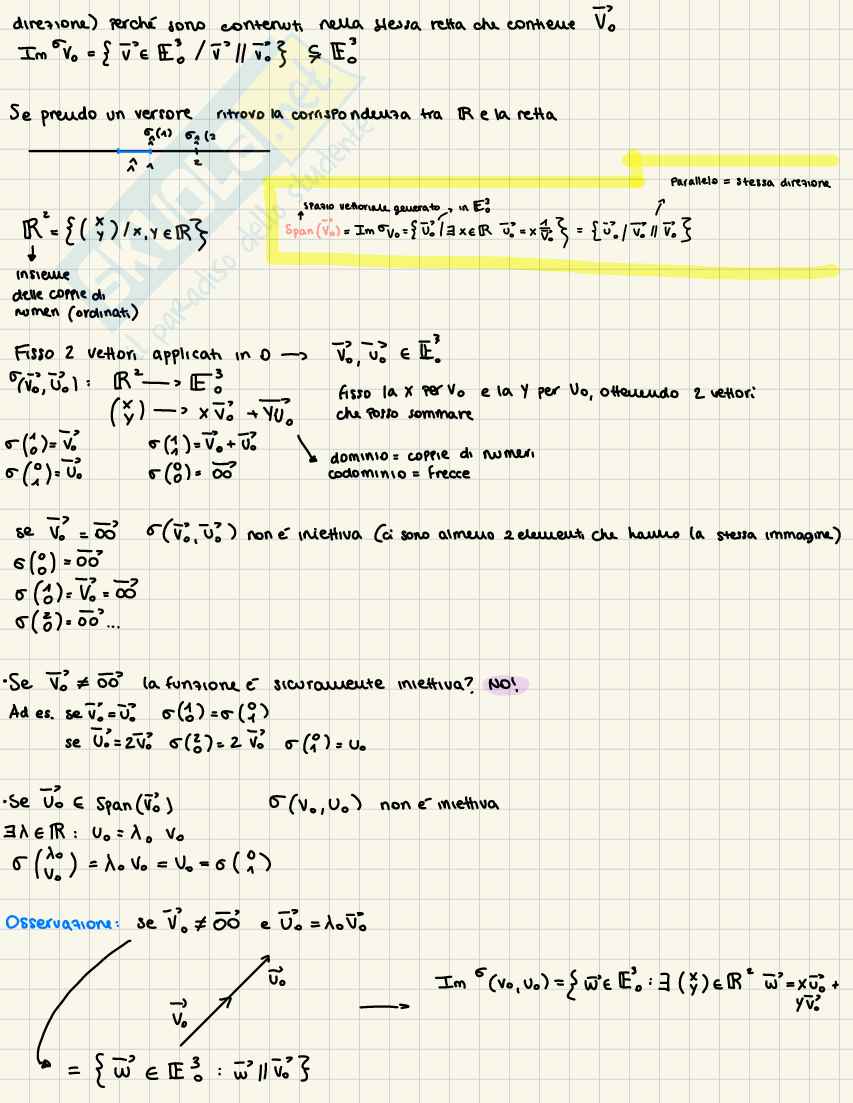 direzione) perché sono contenuti nella stessa retta che contiene V⃗₀
Im σv₀ = { v⃗ ∈ E³₀ / v⃗ // v⃗₀ } ⊊ E³₀
Se prendo un versore ritrovo la corrispondenza tra ℝ e la retta
σ_î(1) σ_î(2
î 1 2
Parallelo = stessa direzione
spazio vettoriale generato, in E³₀
Span(v⃗₀) = Im σv₀ = { u⃗₀ / ∃ x ∈ ℝ u⃗₀ = x v⃗₀ } = { u⃗₀ / v⃗₀ // v⃗₀ }
ℝ² = { (x y) / x, y ∈ ℝ }
insieme
delle coppie di
numeri (ordinati)
Fisso 2 vettori applicati in 0 → v⃗₀, u⃗₀ ∈ E³₀
σ(v⃗₀, u⃗₀) : ℝ² → E³₀
(x y) → x v⃗₀ + y u⃗₀
fisso la x per v₀ e la y per u₀, ottenendo 2 vettori
che posso sommare
σ(1 0) = v⃗₀ σ(1 1) = v⃗₀ + u⃗₀
σ(0 1) = u⃗₀ σ(0 0) = 00⃗
dominio = coppie di numeri
codominio = frecce
se v⃗₀ = 00⃗ σ(v⃗₀, u⃗₀) non è iniettiva (ci sono almeno 2 elementi che hanno la stessa immagine)
σ(0 0) = 00⃗
σ(1 0) = v⃗₀ = 00⃗
σ(2 0) = 00⃗ ...
·Se v⃗₀ ≠ 00⃗ la funzione è sicuramente iniettiva? NO!
Ad es. se v⃗₀ = u⃗₀ σ(1 0) = σ(0 1)
se u⃗₀ = 2v⃗₀ σ(2 0) = 2 v⃗₀ σ(0 1) = u₀
·Se u⃗₀ ∈ Span(v⃗₀) σ(v₀, u₀) non è iniettiva
∃ λ ∈ ℝ : u₀ = λ₀ v₀
σ(λ₀ v₀) = λ₀ v₀ = u₀ = σ(0 1)
Osservazione: se v⃗₀ ≠ 00⃗ e u⃗₀ = λ₀ v⃗₀
u⃗₀
v⃗₀
Im σ(v₀, u₀) = { w⃗ ∈ E³₀ : ∃ (x y) ∈ ℝ² w⃗ = x u⃗₀ +
y v⃗₀
= { w⃗ ∈ E³₀ : w⃗ // v⃗₀ }
skuola.net
il paradiso dello studente